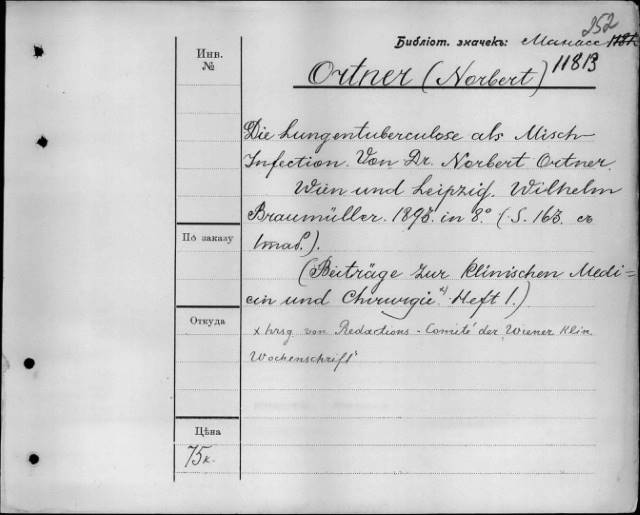 252
Библіот. значекъ: Манасс
11813
Инв.
№
Ortner (Norbert)
Die Lungentuberculose als Misch-
Infection. Von Dr. Norbert Ortner.
Wien und Leipzig. Wilhelm
Braumüller. 1893. in 8° (S. 163. съ
1 таб.).
По заказу
(Beiträge zur klinischen Medi=
cin und Chirurgie x) Heft 1.)
Откуда
x hrsg. von Redactions-Comité der „Wiener klin.
Wochenschrift"
Цѣна
75 к.